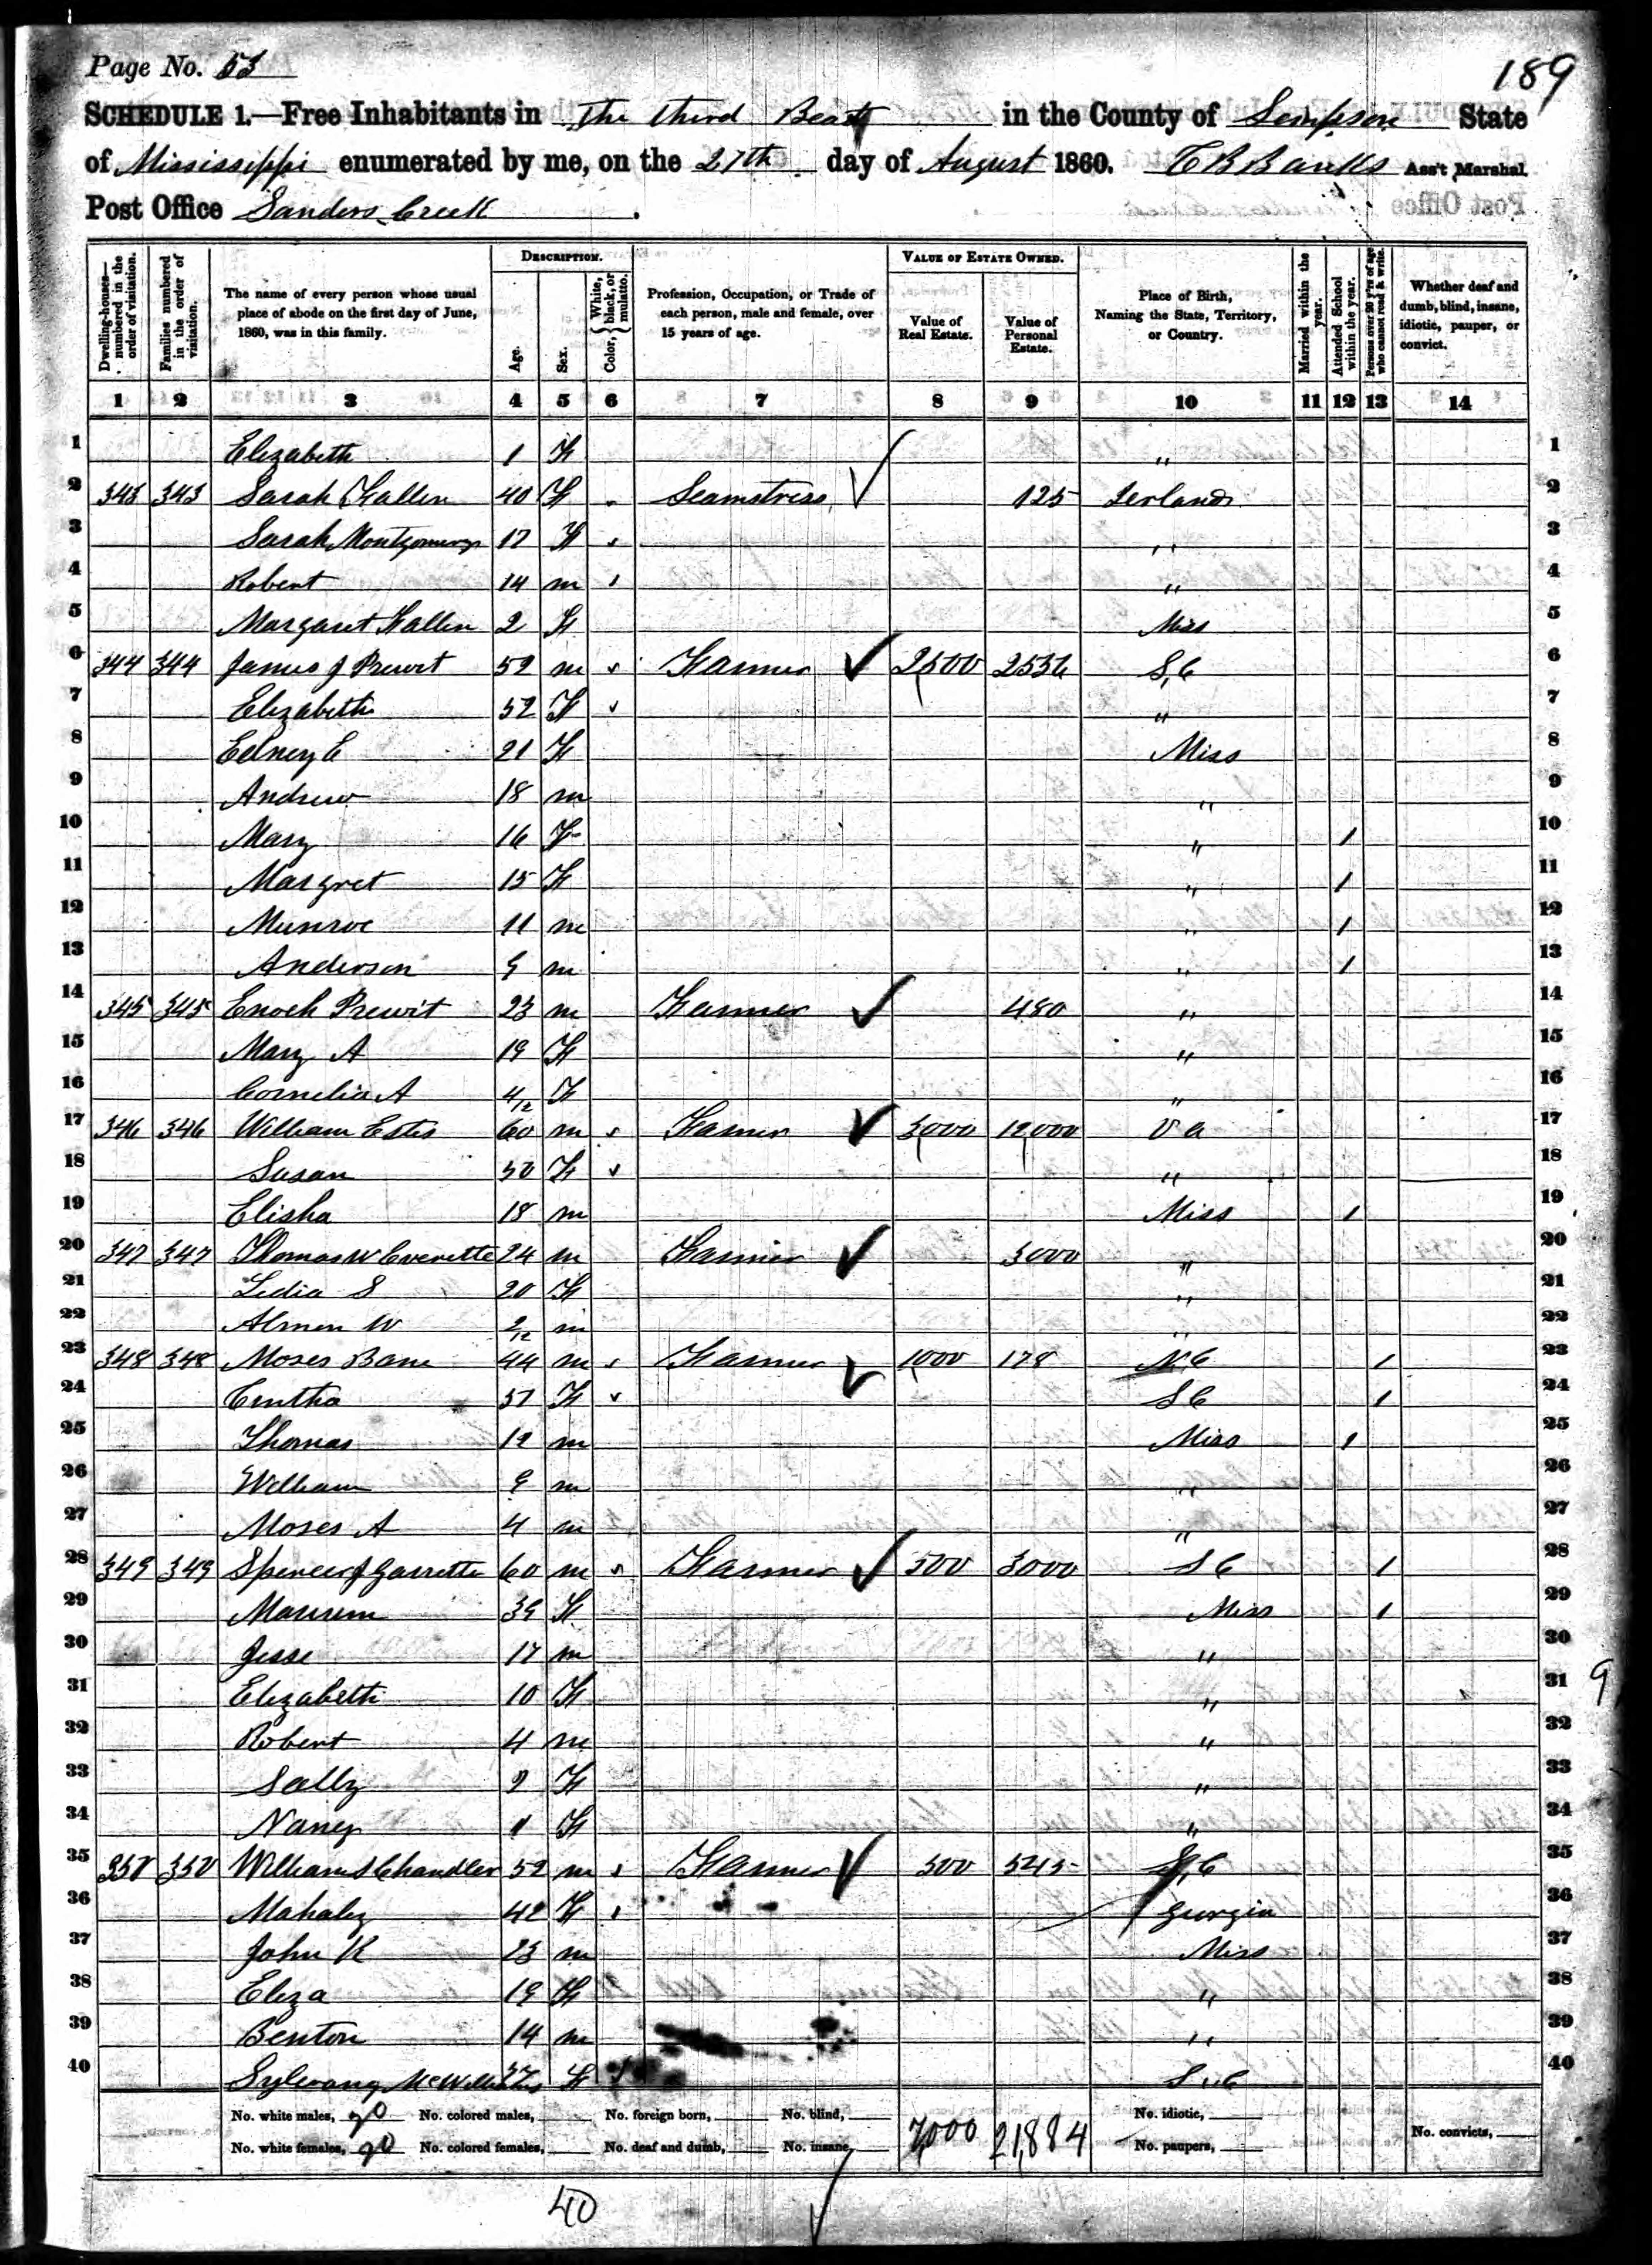 Page No. 53
189
SCHEDULE 1.—Free Inhabitants in The third Beat in the County of Simpson State
of Mississippi enumerated by me, on the 27th day of August 1860. T B Banks Ass't Marshal.
Post Office Sanders Creek
Dwelling-houses—numbered in the order of visitation. Families numbered in the order of visitation. The name of every person whose usual place of abode on the first day of June, 1860, was in this family. DESCRIPTION. Age. Sex. Color, White, black, or mulatto. Profession, Occupation, or Trade of each person, male and female, over 15 years of age. VALUE OF ESTATE OWNED. Value of Real Estate. Value of Personal Estate. Place of Birth, Naming the State, Territory, or Country. Married within the year. Attended School within the year. Persons over 20 y'rs of age who cannot read & write. Whether deaf and dumb, blind, insane, idiotic, pauper, or convict.
1 2 3 4 5 6 7 8 9 10 11 12 13 14
1 Elizabeth 1 F " 1
2 343 343 Sarah Fallen 40 F Seamstress 125 Ierland 2
3 Sarah Montgomery 17 F " 3
4 Robert 14 m " 4
5 Margaret Fallen 2 F Miss 5
6 344 344 James J Prewit 52 m Farmer 2500 2536 S,C 6
7 Elizabeth 52 F " 7
8 Edney E 21 F Miss 8
9 Andrew 18 m " 9
10 Mary 16 F " 1 10
11 Margret 15 F " 1 11
12 Munroe 11 m " 1 12
13 Anderson 9 m " 1 13
14 345 345 Enoch Prewit 23 m Farmer 480 " 14
15 Mary A 19 F " 15
16 Cornelia A 4/12 F " 16
17 346 346 William Estes 60 m Farmer 3000 12000 Va 17
18 Susan 50 F " 18
19 Elisha 18 m Miss 1 19
20 347 347 Thomas W Everette 24 m Farmer 3000 " 20
21 Lidia S 20 F " 21
22 Almon W 2/12 m " 22
23 348 348 Moses Bane 44 m Farmer 1000 178 N C 1 23
24 Cintha 37 F S C 1 24
25 Thomas 12 m Miss 1 25
26 William 9 m " 26
27 Moses A 4 m " 27
28 349 349 Spencer J Garrette 60 m Farmer 500 3000 S C 1 28
29 39 F Miss 1 29
30 Jesse 17 m " 30
31 Elizabeth 10 F " 31 9
32 Robert 4 m " 32
33 Sally 2 F " 33
34 Nancy 1 F " 34
35 350 350 William S Chandler 52 m Farmer 500 545 S,C 35
36 Mahaley 42 F Gurgia 36
37 John K 23 m Miss 37
38 Eliza 19 F " 38
39 Benton 14 m " 39
40 F S C 40
No. white males, 20 No. colored males, No. foreign born, No. blind, 7,000 21,884 No. idiotic,
No. white females, 20 No. colored females, No. deaf and dumb, No. insane, No. paupers, No. convicts,
40